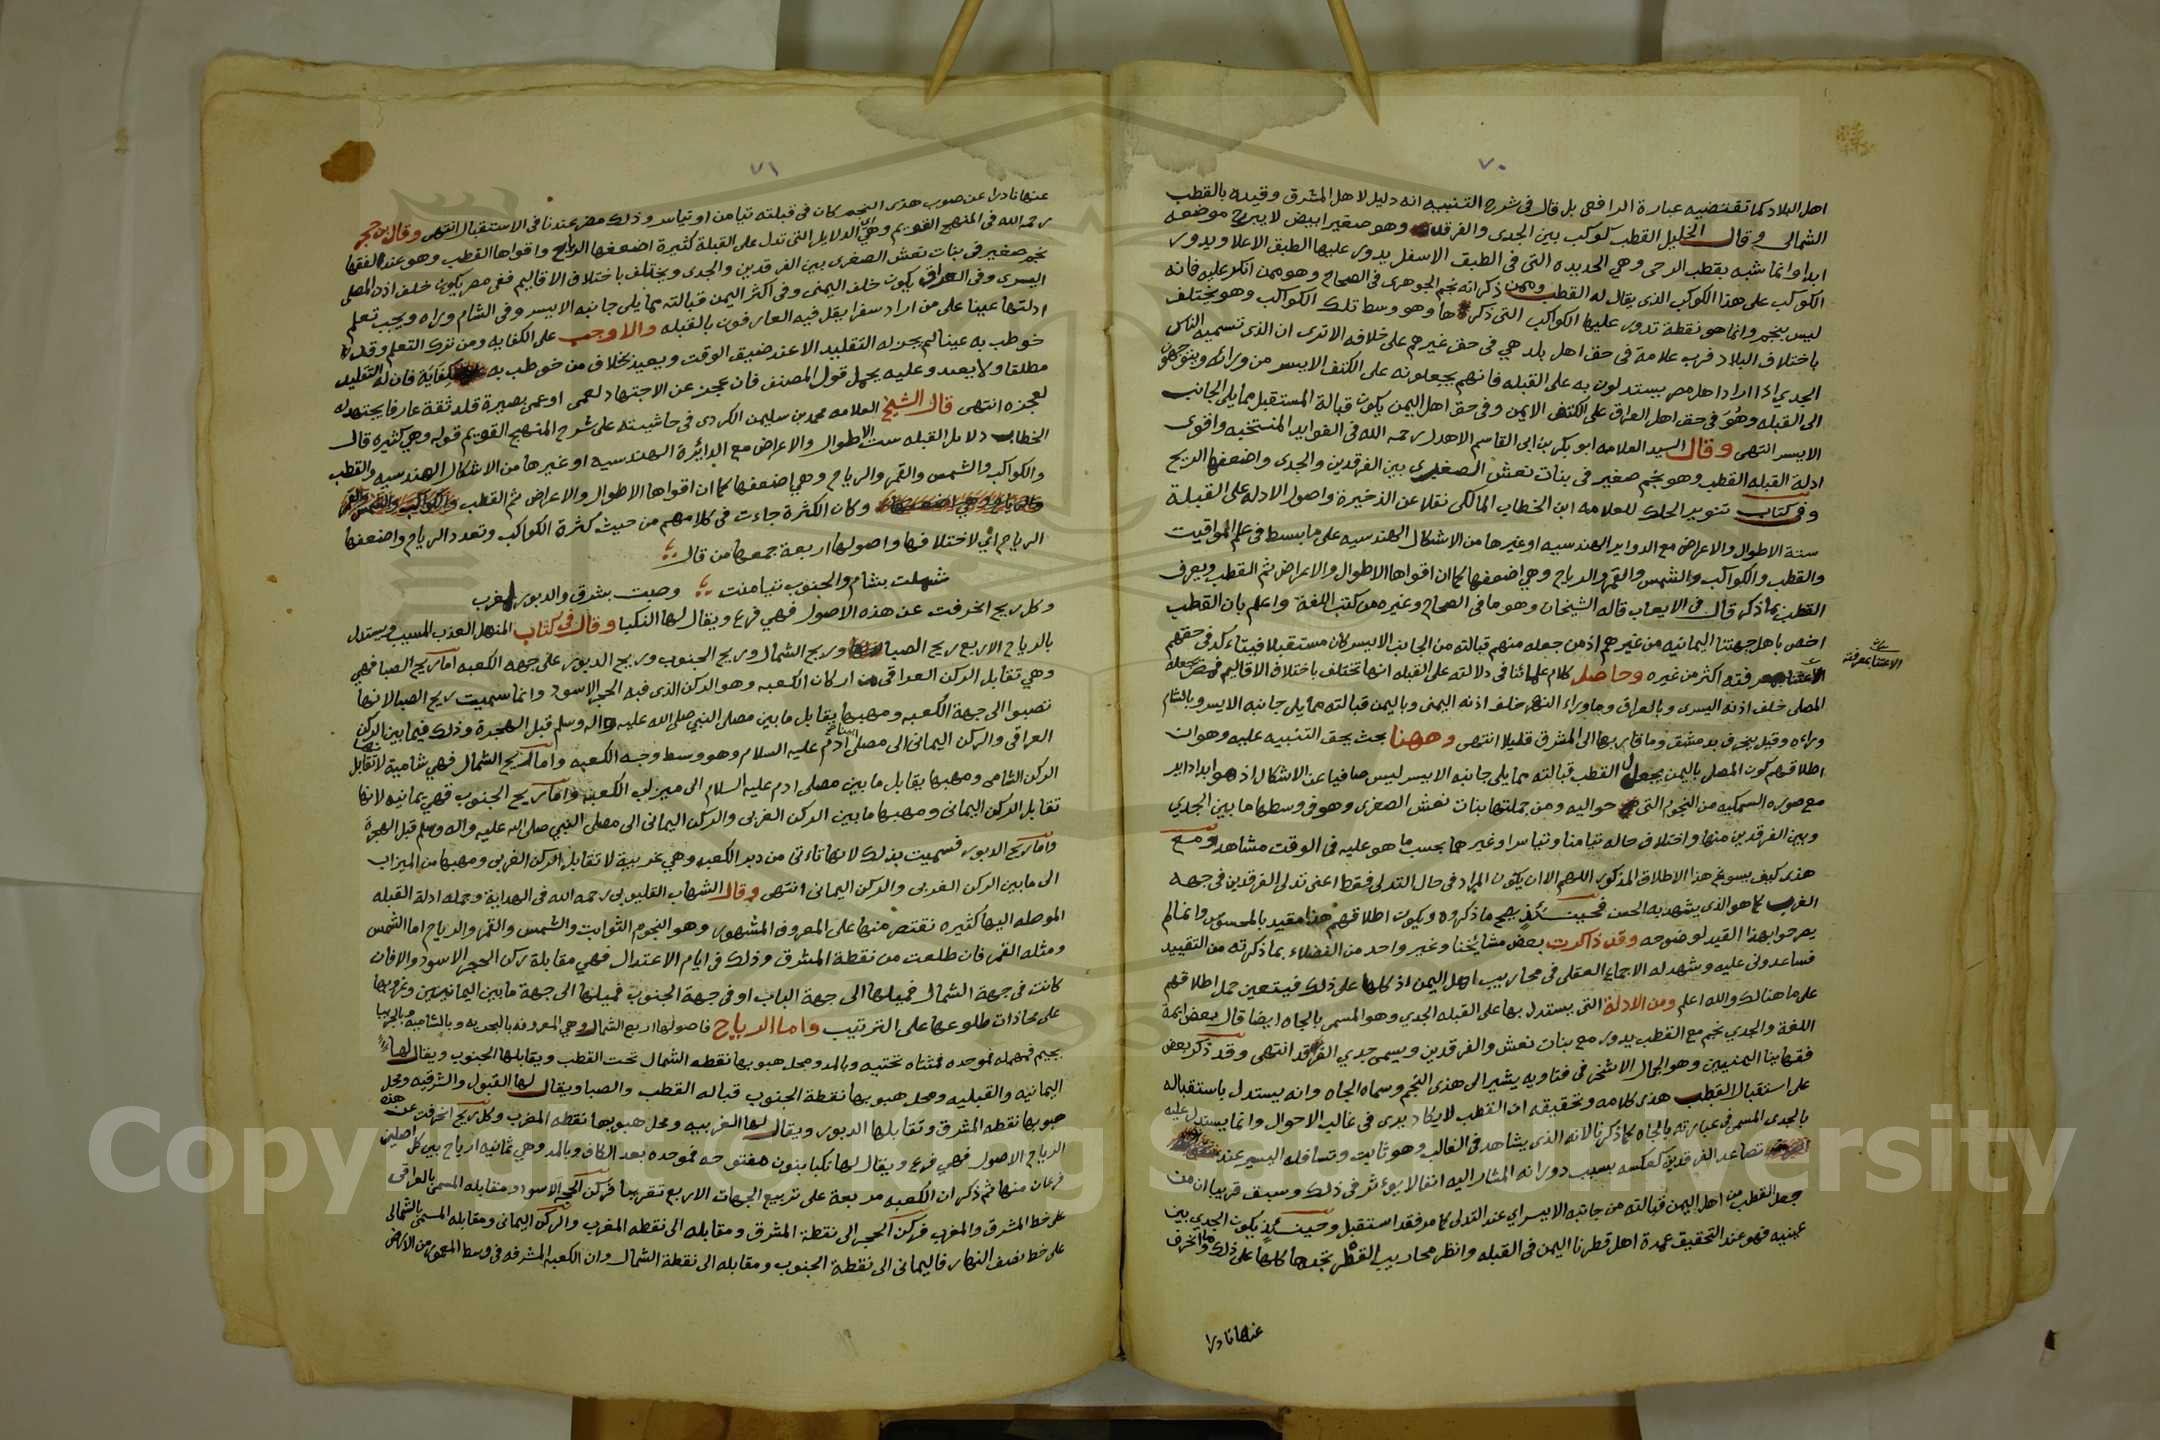 ٧٠
اهل البلاد كما تقتضيه عبارة الرافعي بل قال في شرح التنبيه انه دليل لاهل المشرق وقيده بالقطب
الشمالي وقال الخليل القطب كوكب بين الجدي والفرقدين وهو صغير ابيض لا يبرح موضعه
ابدا وانما شبه بقطب الرحى وهي الحديده التي في الطبق الاسفل يدور عليها الطبق الاعلا ويدور
الكواكب على هذا الكوكب الذي يقال له القطب وممن ذكر انه نجم الجوهري في الصحاح وهو ممن انكر عليه فانه
ليس بنجم وانما هو نقطة تدور عليها الكواكب التي ذكرها وهو وسط تلك الكواكب وهو يختلف
باختلاف البلاد فرب علامة في حق اهل بلد هي في حق غيرهم على خلافه الا ترى ان الذي تسميه الناس
الجدي اذا اراد اهل مصر يستدلون به على القبله فانهم يجعلونه على الكتف الايسر من ورائه ويتوجهون
الى القبله وهو في حق اهل العراق على الكتف الايمن وفي حق اهل اليمن يكون قبالة المستقبل مما يلي الجانب
الايسر انتهى وقال السيد العلامه ابو بكر بن ابى القاسم الاهدل رحمه الله في الفوايد المنتخبه واقوى
ادلة القبله القطب وهو نجم صغير في بنات نعش الصغرى بين الفرقدين والجدي واضعفها الريح
وفي كتاب تنوير الحلك للعلامه ابن الخطاب المالكي نقلا عن الذخيرة واصول الادله على القبلة
ستة الاطوال والاعراض مع الدواير الهندسيه او غيرها من الاشكال الهندسيه على ما بسط في علم المواقيت
والقطب والكواكب والشمس والقمر والرياح وهي اضعفها كما ان اقواها الاطوال والاعراض ثم القطب ويعرف
القطب بما ذكر قال في الايعاب قاله الشيخان وهو ما في الصحاح وغيره من كتب اللغة واعلم بان القطب
اخص باهل جهتنا اليمانيه من غيرهم اذ من جعله منهم قبالته من الجانب الايسر كان مستقبلا فيتاكد في حقهم
معرفته اكثر من غيره وحاصل كلام علمائنا في دلالته على القبله انها تختلف باختلاف الاقاليم فمصر يجعله
الاعتنا بمعرفته
المصلى خلف اذنه اليسرى وبالعراق وما وراء النهر خلف اذنه اليمنى وباليمن قبالته مما يلي جانبه الايسر وبالشام
وراءه وقيل ينحرف بدمشق وما قاربها الى المشرق قليلا انتهى وههنا بحث يحق التنبيه عليه وهو ان
اطلاقهم كون المصلى باليمن يجعل القطب قبالته مما يلي جانبه الايسر ليس صافيا عن الاشكال اذ هو ابدا داير
مع صورة السمكيه من النجوم التي حواليه ومن جملتها بنات نعش الصغرى وهو في وسطها ما بين الجدي
وبين الفرقدين منها واختلاف حاله تيامنا وتياسرا وغيرهما بحسب ما هو عليه في الوقت مشاهد ومع
هذى كيف يسوغ هذا الاطلاق المذكور اللهم الا ان يكون المراد في حال التدلي فقط اعنى تدلي الفرقدين في جهة
الغرب كما هو الذي يشهد به الحس فحينئذ يصح ما ذكروه ويكون اطلاقهم هذا مقيد بالمحسوس وانما لم
يصرحوا بهذا القيد لوضوحه وقد ذاكرت بعض مشائخنا وغير واحد من الفضلاء بما ذكرته من التقييد
فساعدوني عليه وشهد له الاجماع العقلي في محاريب اهل اليمن اذ كلها على ذلك فيتعين حمل اطلاقهم
على ما هنالك والله اعلم ومن الادلة التي يستدل بها على القبله الجدي وهو المسمى بالجاه ايضا قال بعض ايمة
اللغة والجدي نجم مع القطب يدور مع بنات نعش والفرقدين ويسمى جدي الفرقد انتهى وقد ذكر بعض
فقهاينا اليمنيين وهو الجمال الاشخر في فتاويه يشير الى هذى النجم وسماه الجاه وانه يستدل باستقباله
على استقبال القطب هذى كلامه وتحقيقه ان القطب لا يكاد يرى في غالب الاحوال وانما يستدل عليه
بالجدي المسمى في عبارته بالجاه كما ذكرنا لانه الذي يشاهد في الغالب وهو ثابت وتسافله اليسير عند
تصاعد الفرقدين كعكسه بسبب دورانه المشار اليه انفا لا يوءثر في ذلك وسبق قريبا ان من
جعل القطب من اهل اليمن قبالته من جانبه الايسر اي عند التدلي كما مر فقد استقبل وحينئذ يكون الجدي بين
عينيه فهو عند التحقيق عمدة اهل قطرنا اليمن في القبله وانظر محاريب القطر تجدها كلها على ذلك وما انحرف
عنها نادرا
٧١
عنها نادرا عن صوب هذى النجم كان في قبلته تيامن او تياسر وذلك مضر عندنا في الاستقبال انتهى وقال بن حجر
رحمه الله في المنهج القويم وهي اي الدلايل التي تدل على القبلة كثيرة اضعفها الرياح واقواها القطب وهو عند الفقها
نجم صغير في بنات نعش الصغرى بين الفرقدين والجدي ويختلف باختلاف الاقاليم ففي مصر يكون خلف اذن المصلي
اليسرى وفي العراق يكون خلف اليمنى وفي اكثر اليمن قبالته مما يلي جانبه الايسر وفي الشام وراه ويجب تعلم
ادلتها عينا على من اراد سفرا يقل فيه العارفون بالقبله والا وجب على الكفايه ومن ترك التعلم وقد
خوطب به عينا لم يجز له التقليد الا عند ضيق الوقت ويعيد بخلاف من خوطب به كفاية فان له التقليد
مطلقا ولا يعيد وعليه يحمل قول المصنف فان عجز عن الاجتهاد لعمى او عمى بصيرة قلد ثقة عارفا يجتهد له
لعجزه انتهى قال الشيخ العلامه محمد بن سليمن الكردي في حاشيته على شرح المنهج القويم قوله وهي كثيره قال
الخطاب دلايل القبله ست الاطوال والاعراض مع الدائرة الهندسيه او غيرها من الاشكال الهندسيه والقطب
والكواكب والشمس والقمر والرياح وهي اضعفها كما ان اقواها الاطوال والاعراض ثم القطب
وكان الكثرة جاءت في كلامهم من حيث كثرة الكواكب وتعدد الرياح واضعفها
الرياح اي لاختلافها واصولها اربعة جمعها من قال
شملت بشام والجنوب تيامنت وصبت بشرق والدبور بمغرب
وكل ريح انحرفت عن هذه الاصول فهي فرع ويقال لها النكبا وقال في كتاب المنهل العذب المسيب ويستدل
بالرياح الاربع ريح الصبا وريح الشمال وريح الجنوب وريح الدبور على جهه الكعبه اما ريح الصبا فهي
وهي تقابل الركن العراقي من اركان الكعبه وهو الركن الذي فيه الحجر الاسود وانما سميت ريح الصبا لانها
تصبوا الى جهة الكعبه ومهبها يقابل ما بين مصلى النبي صلى الله عليه واله وسلم قبل الهجرة وذلك فيما بين الركن
العراقي والركن اليماني الى مصلى ادم عليه السلام وهو وسط وجه الكعبه واما ريح الشمال فهي شامية لانها تقابل
الركن الشامي ومهبها يقابل ما بين مصلى ادم عليه السلام الى ميزاب الكعبه واما ريح الجنوب فهي يمانيه لانها
تقابل الركن اليماني ومهبها ما بين الركن الغربى والركن اليماني الى مصلى النبي صلى الله عليه واله وسلم قبل الهجرة
واما ريح الدبور فسميت بذلك لانها تاءتي من دبر الكعبه وهي غربية لانها تقابل الركن الغربي ومهبها من الميزاب
الى ما بين الركن الغربى والركن اليماني انتهى وقال الشهاب القليوبي رحمه الله في الهداية وجمله ادلة القبله
الموصله اليها كثيره نقتصر منها على المعروف المشهور وهو النجوم الثوابت والشمس والقمر والرياح اما الشمس
ومثله القمر فان طلعت من نقطة المشرق وذلك في ايام الاعتدال فهي مقابلة ركن الحجر الاسود والا فان
كانت في جهة الشمال فميلها الى جهة الباب او في جهة الجنوب فميلها الى جهة ما بين اليمانيين وغروبها
على محاذات طلوعها على الترتيب واما الرياح فاصولها اربع الشمال وهي المعروفه بالبحريه وبالشاميه وبالجربيا
بجيم فمهمله فموحده فمثناه تحتيه وبالمد ومحل هبوبها نقطه الشمال تحت القطب ويقابلها الجنوب ويقال لها
اليمانيه والقبليه ومحل هبوبها نقطة الجنوب قباله القطب والصبا ويقال لها القبول والشرقيه ومحل
هبوبها نقطه المشرق وتقابلها الدبور ويقال لها الغربيه ومحل هبوبها نقطه المغرب وكل ريح انحرفت عن هذه
الرياح الاصول فهي فرع ويقال لها نكبا بنون مفتوحه فموحده بعد الكاف وبالمد وهي ثمانيه ارياح بين كل اصلين
فرعان منها ثم ذكر ان الكعبه مربعة على تربيع الجهات الاربع تقريبا فركن الحجر الاسود ومقابله المسمى بالعراقى
على خط المشرق والمغرب فركن الحجر الى نقطة المشرق ومقابله الى نقطه المغرب والركن اليماني ومقابله المسمى بالشمالي
على خط نصف النهار فاليماني الى نقطة الجنوب ومقابله الى نقطة الشمال وان الكعبه المشرفه في وسط المعمور من الارض
Copyright © King Saud University